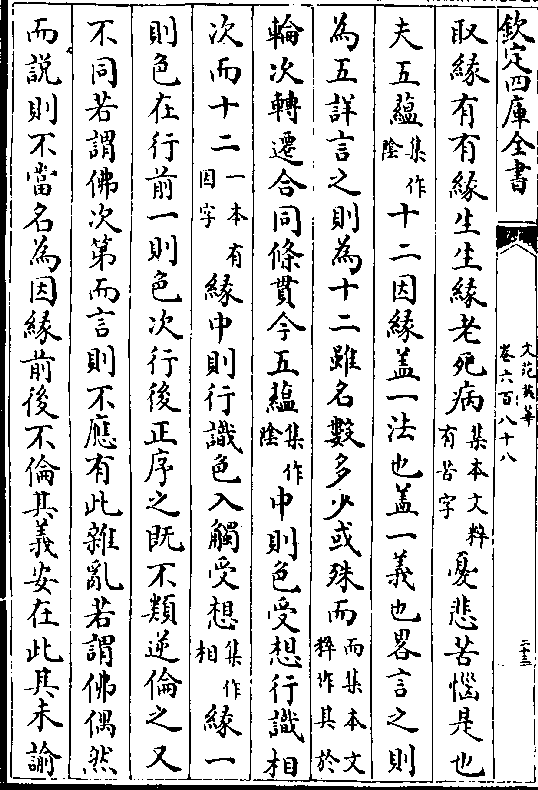 欽定四庫全書
文苑英華
卷六百八十八
二十三
取緣有有緣生生緣老死病集本文粹有苦字憂悲苦惱是也
夫五蘊集作陰十二因緣盖一法也盖一義也畧言之則
為五詳言之則為十二雖名數多少或殊而而集本文粹作其於
輪次轉遷合同條貫今五蘊集作陰中則色受想行識相
次而十二一本有因字緣中則行識色入觸受想集作相緣一
則色在行前一則色次行後正序之既不類逆倫之又
不同若謂佛次第而言則不應有此雜亂若謂佛偶然
而説則不當名為因緣前後不倫其義安在此其未諭